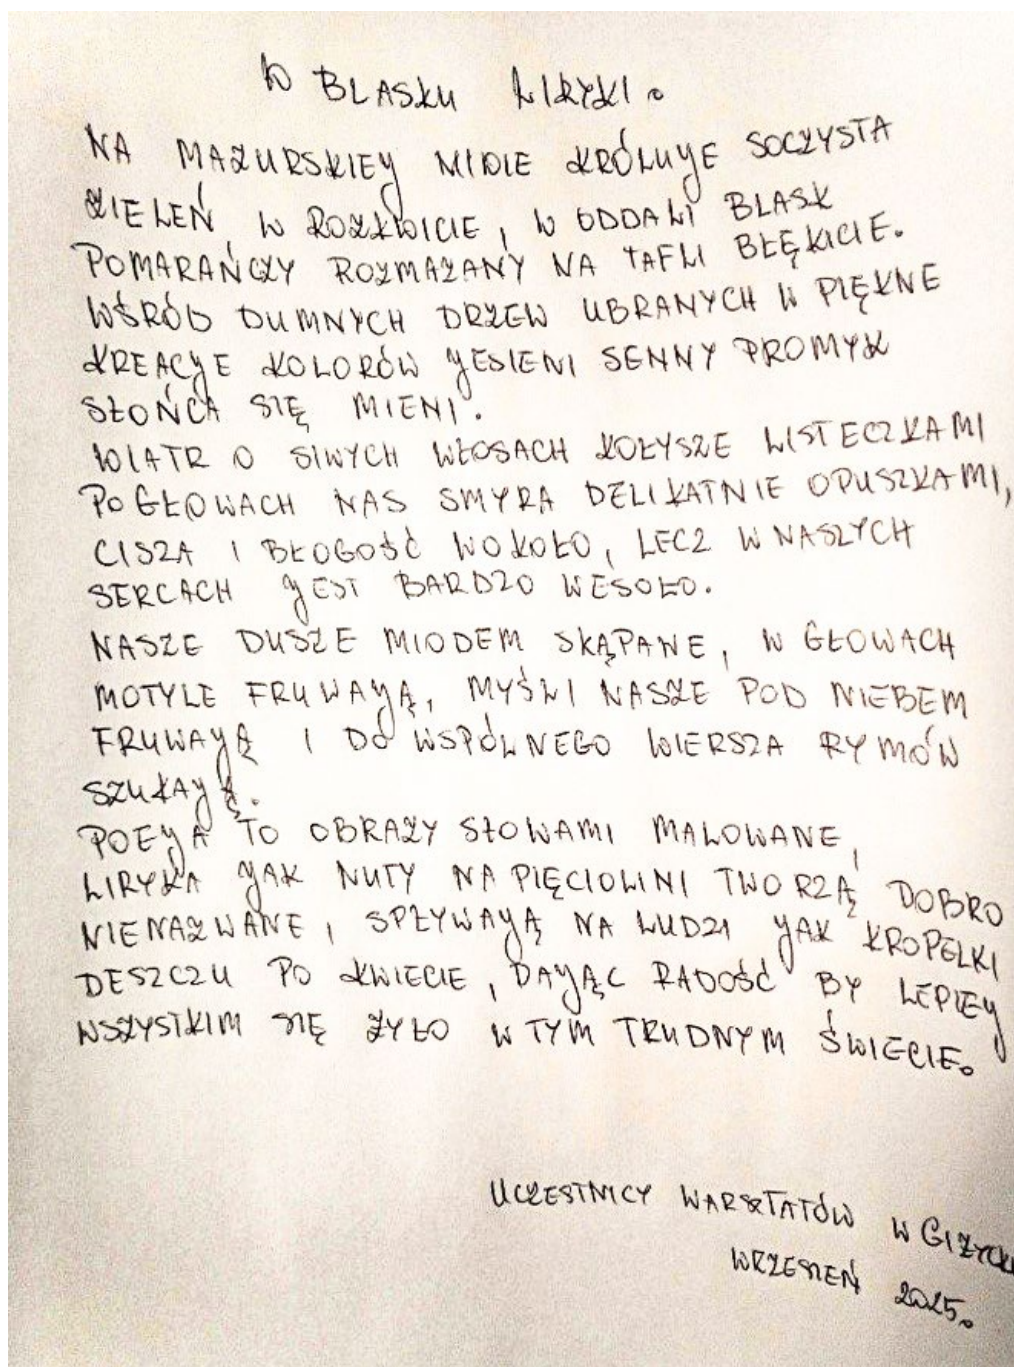 W BLASKU LIRYKI.
NA MAZURSKIEJ NIWIE KRÓLUJE SOCZYSTA
ZIELEŃ W ROZKWICIE, W ODDALI BLASK
POMARAŃCZY ROZMAZANY NA TAFLI BŁĘKICIE.
WŚRÓD DUMNYCH DRZEW UBRANYCH W PIĘKNE
KREACJE KOLORÓW JESIENI SENNY PROMYK
SŁOŃCA SIĘ MIENI.
WIATR O SIWYCH WŁOSACH KOŁYSZE LISTECZKAMI
PO GŁOWACH NAS SMYRA DELIKATNIE OPUSZKAMI,
CISZA I BŁOGOŚĆ WOKOŁO, LECZ W NASZYCH
SERCACH JEST BARDZO WESOŁO.
NASZE DUSZE MIODEM SKĄPANE, W GŁOWACH
MOTYLE FRUWAJĄ, MYŚLI NASZE POD NIEBEM
FRUWAJĄ I DO WSPÓLNEGO WIERSZA RYMÓW
SZUKAJĄ.
POEJA TO OBRAZY SŁOWAMI MALOWANE,
LIRYKA JAK NUTY NA PIĘCIOLINI TWORZĄ DOBRO
NIENAZWANE, SPŁYWAJĄ NA LUDZI JAK KROPELKI
DESZCZU PO KWIECIE, DAJĄC RADOŚĆ BY LEPIEJ
WSZYSTKIM SIĘ ŻYŁO W TYM TRUDNYM ŚWIECIE.
UCZESTNICY WARSZTATÓW W GIŻYCKU
WRZESIEŃ 2025.